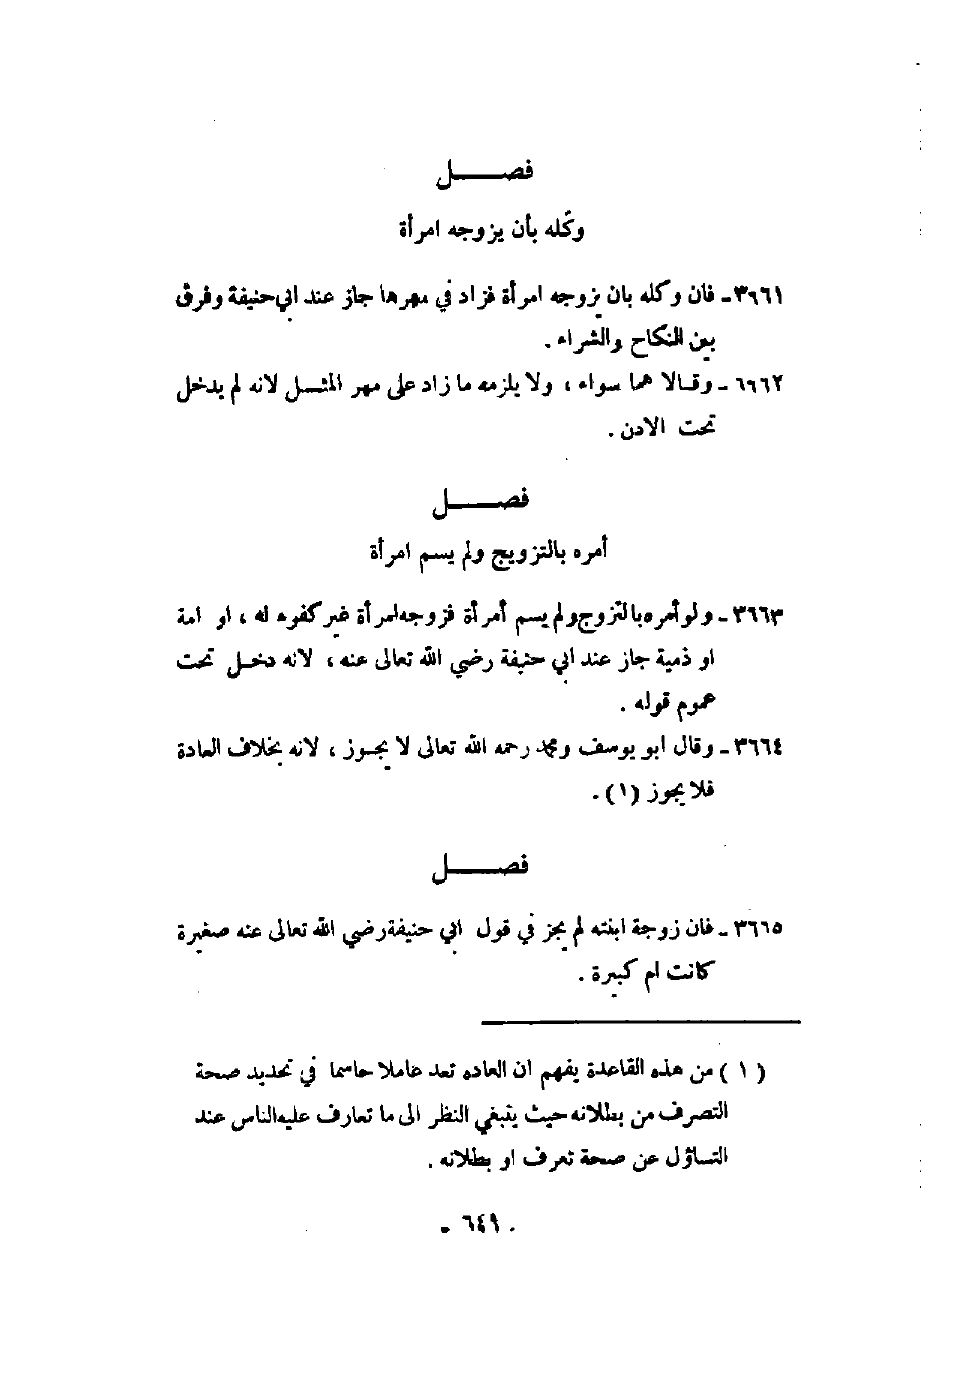 فصــــل
وكّله بأن يزوجه امرأة
٣٦٦١ـ فان وكله بان يزوجه امرأة فزاد في مهرها جاز عند ابي حنيفة وفرق
بين النكاح والشراء .
٦٦٦٢ ـ وقـالا هما سواء ، ولا يلزمه ما زاد على مهر المثـل لانه لم يدخل
تحت الادن .
فصــــل
أمره بالتزويج ولم يسم امرأة
٣٦٦٣ـ ولو أمره بالتزوج ولم يسم أمرأة فزوجه امرأة غير كفوء له ، او امة
او ذمية جاز عند ابي حنيفة رضي الله تعالى عنه ، لانه دخـل تحت
عموم قوله .
٣٦٦٤ ـ وقال ابو يوسف ومحمد رحمه الله تعالى لا يجـوز ، لانه بخلاف العادة
فلا يجوز (١) .
فصــــل
٣٦٦٥ ـ فان زوجة ابنته لم يجز في قول ابي حنيفة رضي الله تعالى عنه صغيرة
كانت ام كبيرة .
( ١ ) من هذه القاعدة يفهم ان العاده تعد عاملا حاسما في تحديد صحة
التصرف من بطلانه حيث ينبغي النظر الى ما تعارف عليه الناس عند
التساؤل عن صحة تعرف او بطلانه .
٠ ٦٤٩ ـ